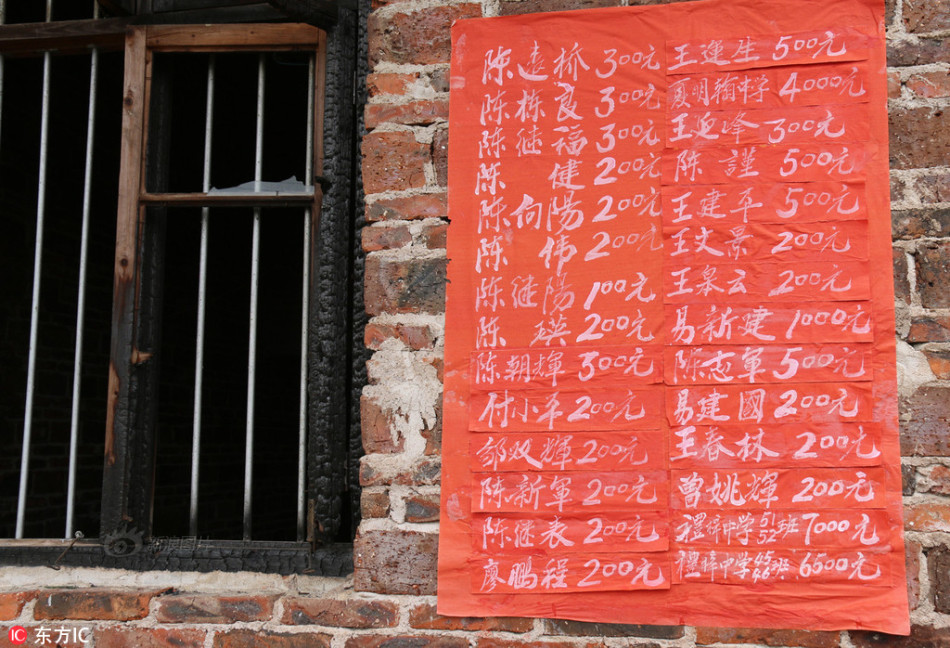 陈远桥 300元
陈栋良 300元
陈继福 300元
陈 健 200元
陈向陽 200元
陈 伟 200元
陈继陽 100元
陈 瑛 200元
陈朝輝 300元
付小平 200元
邹双輝 200元
陈新軍 200元
陈继表 200元
廖鹏程 200元
王運生 500元
夏明翰中学 4000元
王延峰 300元
陈 謹 500元
王建平 500元
王文景 200元
王泉云 200元
易新建 1000元
陈志軍 500元
易建國 200元
王春林 200元
曾姚輝 200元
禮梓中学51 52班 7000元
禮梓中学45 46班 6500元
东方IC